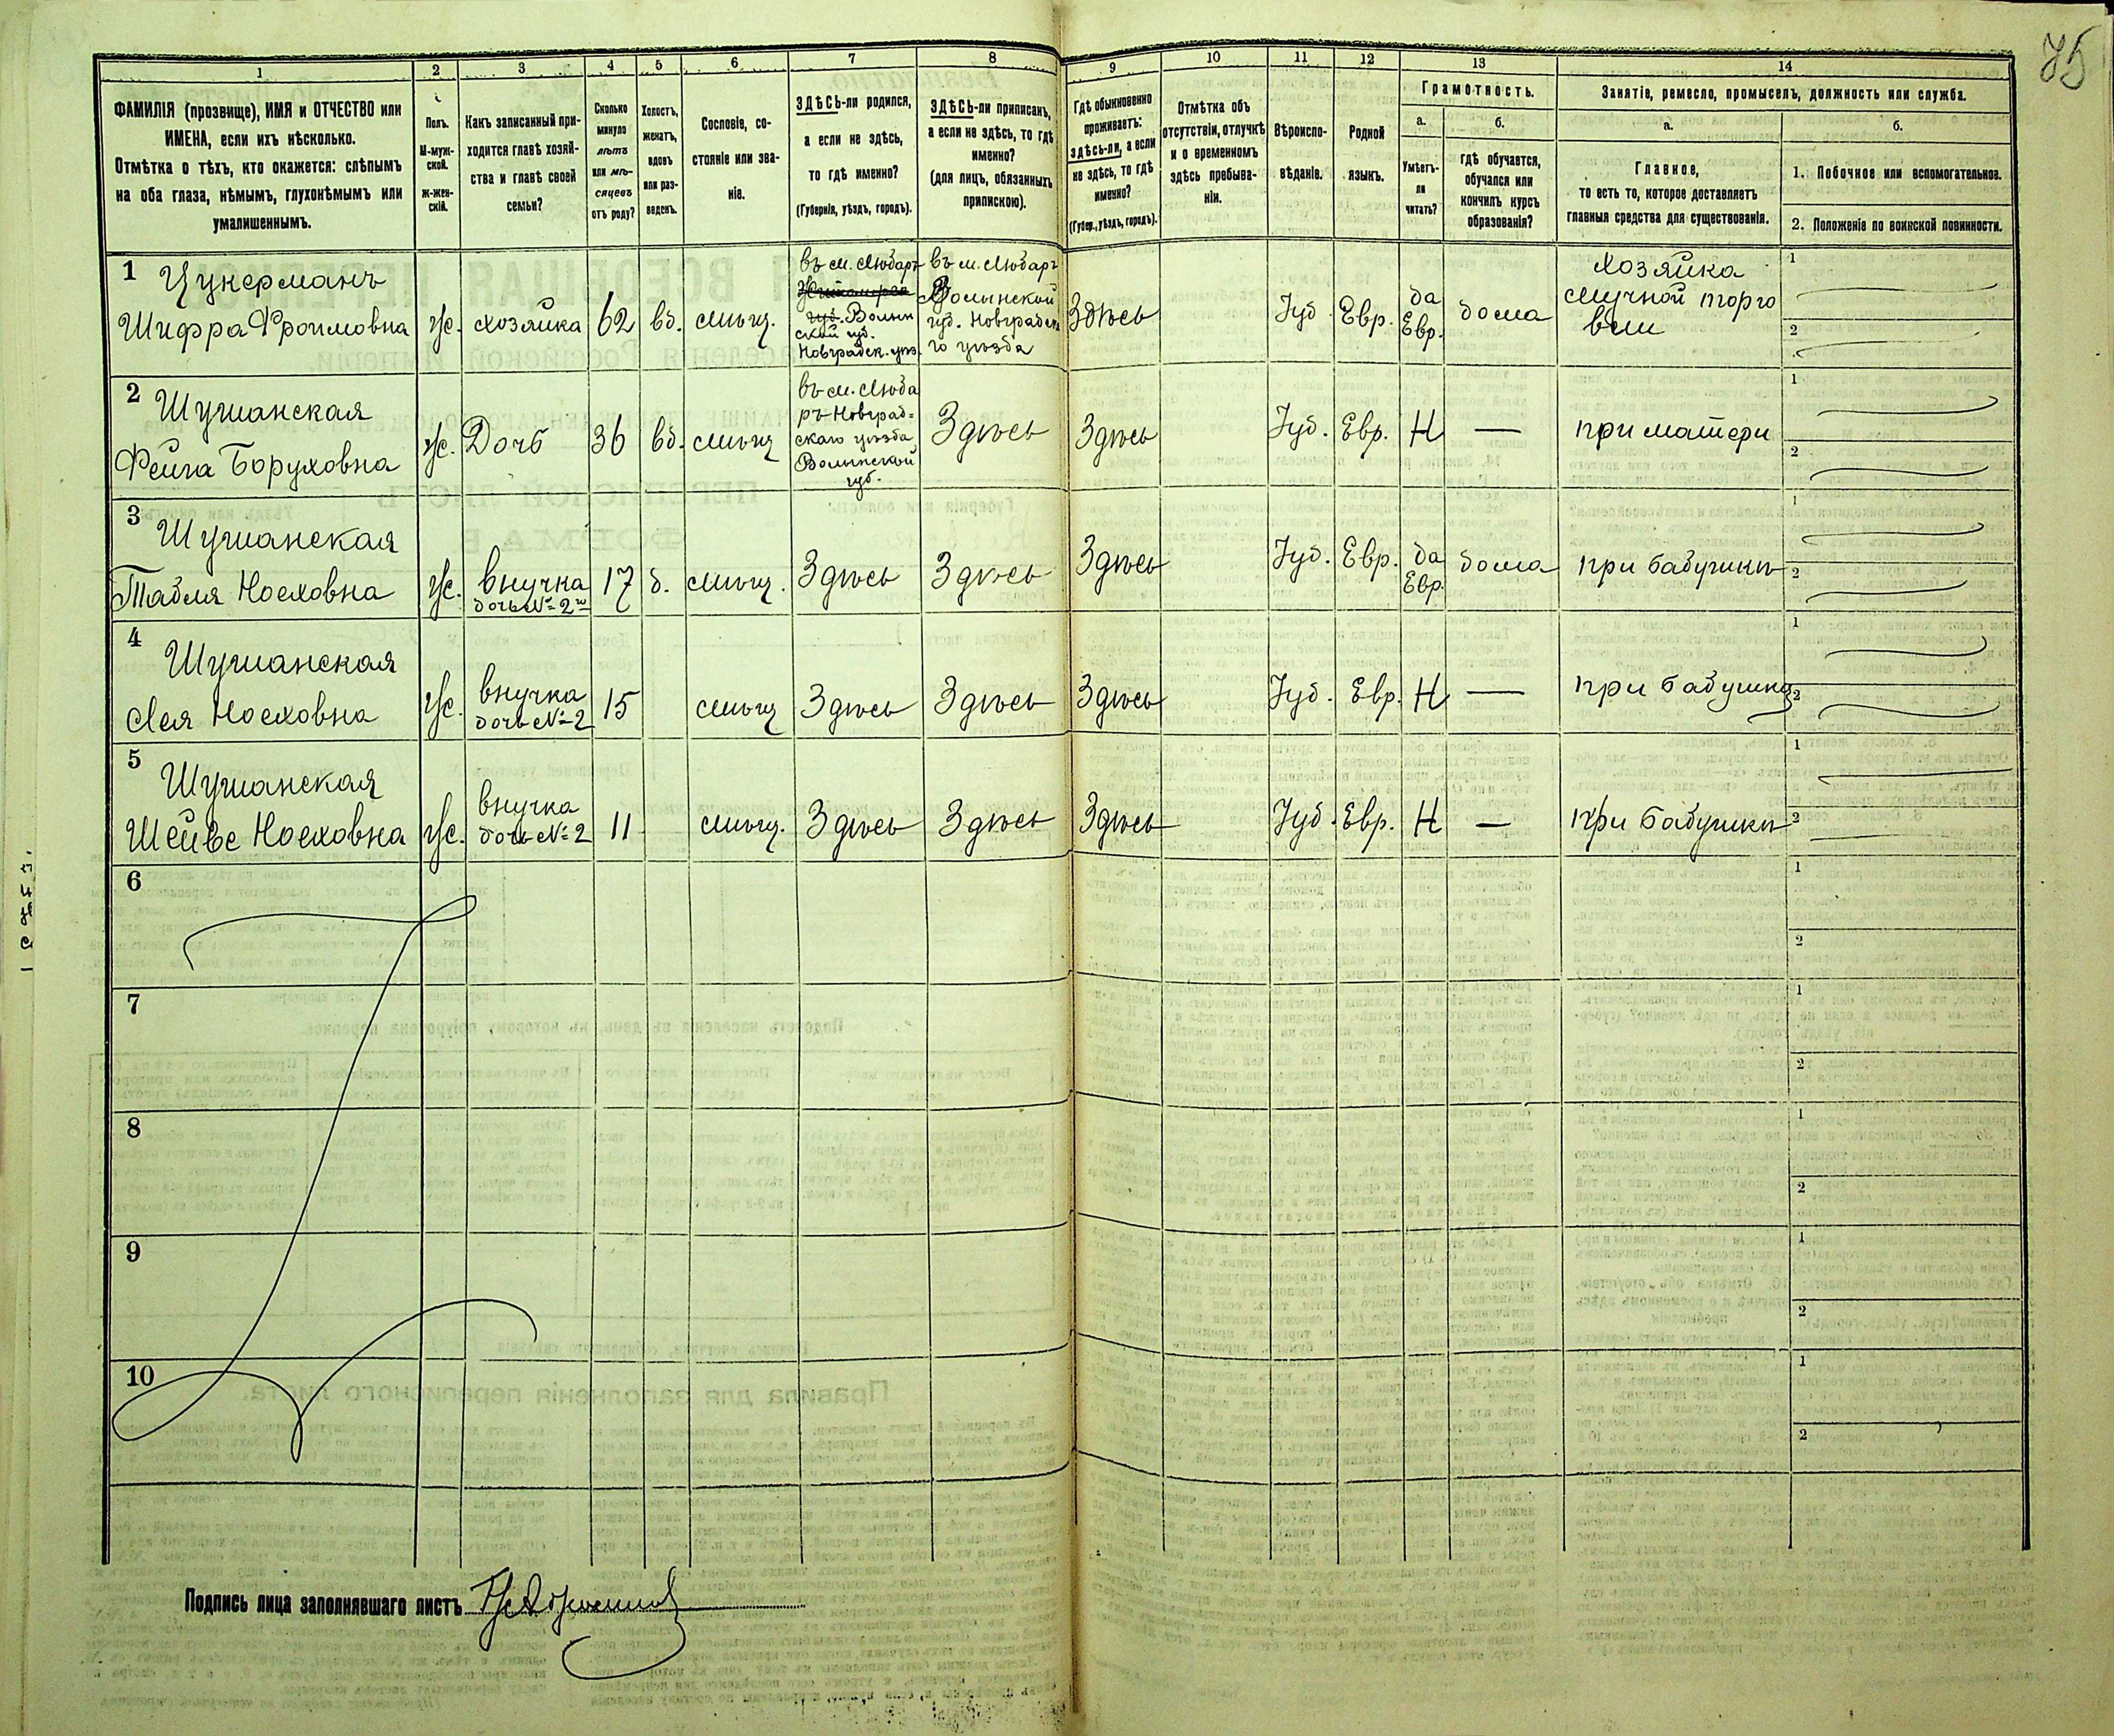 75
1 2 3 4 5 6 7 8 9 10 11 12 13 14
ФАМИЛІЯ (прозвище), ИМЯ и ОТЧЕСТВО или
ИМЕНА, если ихъ нѣсколько.
Отмѣтка о тѣхъ, кто окажется: слѣпымъ
на оба глаза, нѣмымъ, глухонѣмымъ или
умалишеннымъ.
Полъ.
М-муж-
ской.
Ж-жен-
скій.
Какъ записанный при-
ходится главѣ хозяй-
ства и главѣ своей
семьи?
Сколько
минуло
лѣтъ
или мѣ-
сяцевъ
отъ роду?
Холостъ,
женатъ,
вдовъ
или раз-
веденъ.
Сословіе, со-
стояніе или зва-
ніе.
ЗДѢСЬ-ли родился,
а если не здѣсь,
то гдѣ именно?
(Губернія, уѣздъ, городъ).
ЗДѢСЬ-ли приписанъ,
а если не здѣсь, то гдѣ
именно?
(для лицъ, обязанныхъ
припискою).
Гдѣ обыкновенно
проживаетъ:
здѣсь-ли, а если
не здѣсь, то гдѣ
именно?
(Губер., уѣздъ, городъ).
Отмѣтка объ
отсутствіи, отлучкѣ
и о временномъ
здѣсь пребыва-
ніи.
Вѣроиспо-
вѣданіе.
Родной
языкъ.
Грамотность.
а.
Умѣетъ-
ли
читать?
б.
гдѣ обучается,
обучался или
кончилъ курсъ
образованія?
Занятіе, ремесло, промыселъ, должность или служба.
а.
Главное,
то есть то, которое доставляетъ
главныя средства для существованія.
б.
1. Побочное или вспомогательное.
2. Положеніе по воинской повинности.
1 Цукерманъ
Шифра Фроимовна
ж.
хозяйка
62
вд.
мѣщ.
въ м. Любаръ
губ. Волын
ской губ.
Новградск. уѣз.
въ м. Любаръ
Волынской
губ. Новградска
го уѣзда
Здѣсь
Іуд.
Евр.
да
Евр.
дома
Хозяйка
мучной торго
вли
1
2
2 Шушанская
Фейга Боруховна
ж.
Дочь
36
вд.
мѣщ
въ м. Люба
ръ Новград-
скаго уѣзда
Волынской
губ.
Здѣсь
Здѣсь
Іуд.
Евр.
Н
—
при матери
1
2
3 Шушанская
Табля Носховна
ж.
внучка
дочь № 2
17
д.
мѣщ.
Здѣсь
Здѣсь
Здѣсь
Іуд.
Евр.
да
Евр.
дома
при бабушкѣ
1
2
4 Шушанская
Лея Носховна
ж.
внучка
дочь № 2
15
мѣщ
Здѣсь
Здѣсь
Здѣсь
Іуд.
Евр.
Н
—
при бабушкѣ
1
2
5 Шушанская
Шейве Носховна
ж.
внучка
дочь № 2
11
мѣщ.
Здѣсь
Здѣсь
Здѣсь
Іуд.
Евр.
Н
—
при бабушкѣ
1
2
6
1
2
7
1
2
8
1
2
9
1
2
10
1
2
Подпись лица заполнявшаго листъ